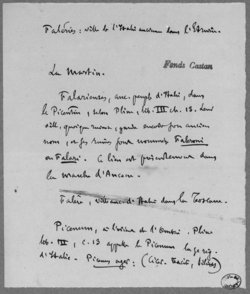 Faléries : ville de l'Italie ancienne dans l'Etrurie.
Fonds Castan
La Martin.
Falarienses, anc. peuple d'Italie, dans
le Picentin, selon Pline, lib. III ch. 13. Leur
ville, quoique ruinée, garde encore son ancien
nom, et ses ruines sont nommés Faleroni
ou Falari. Ce lieu est présentement dans
la marche d'Ancone.
Falere, ville anc. d'Italie dans la Toscane.
Picenum, à l'orient de l'Ombrie. Pline
lib. III, c. 13 appelle le Picenum la 5e rég.
d'Italie. Picenus ager : (César, Tacite,